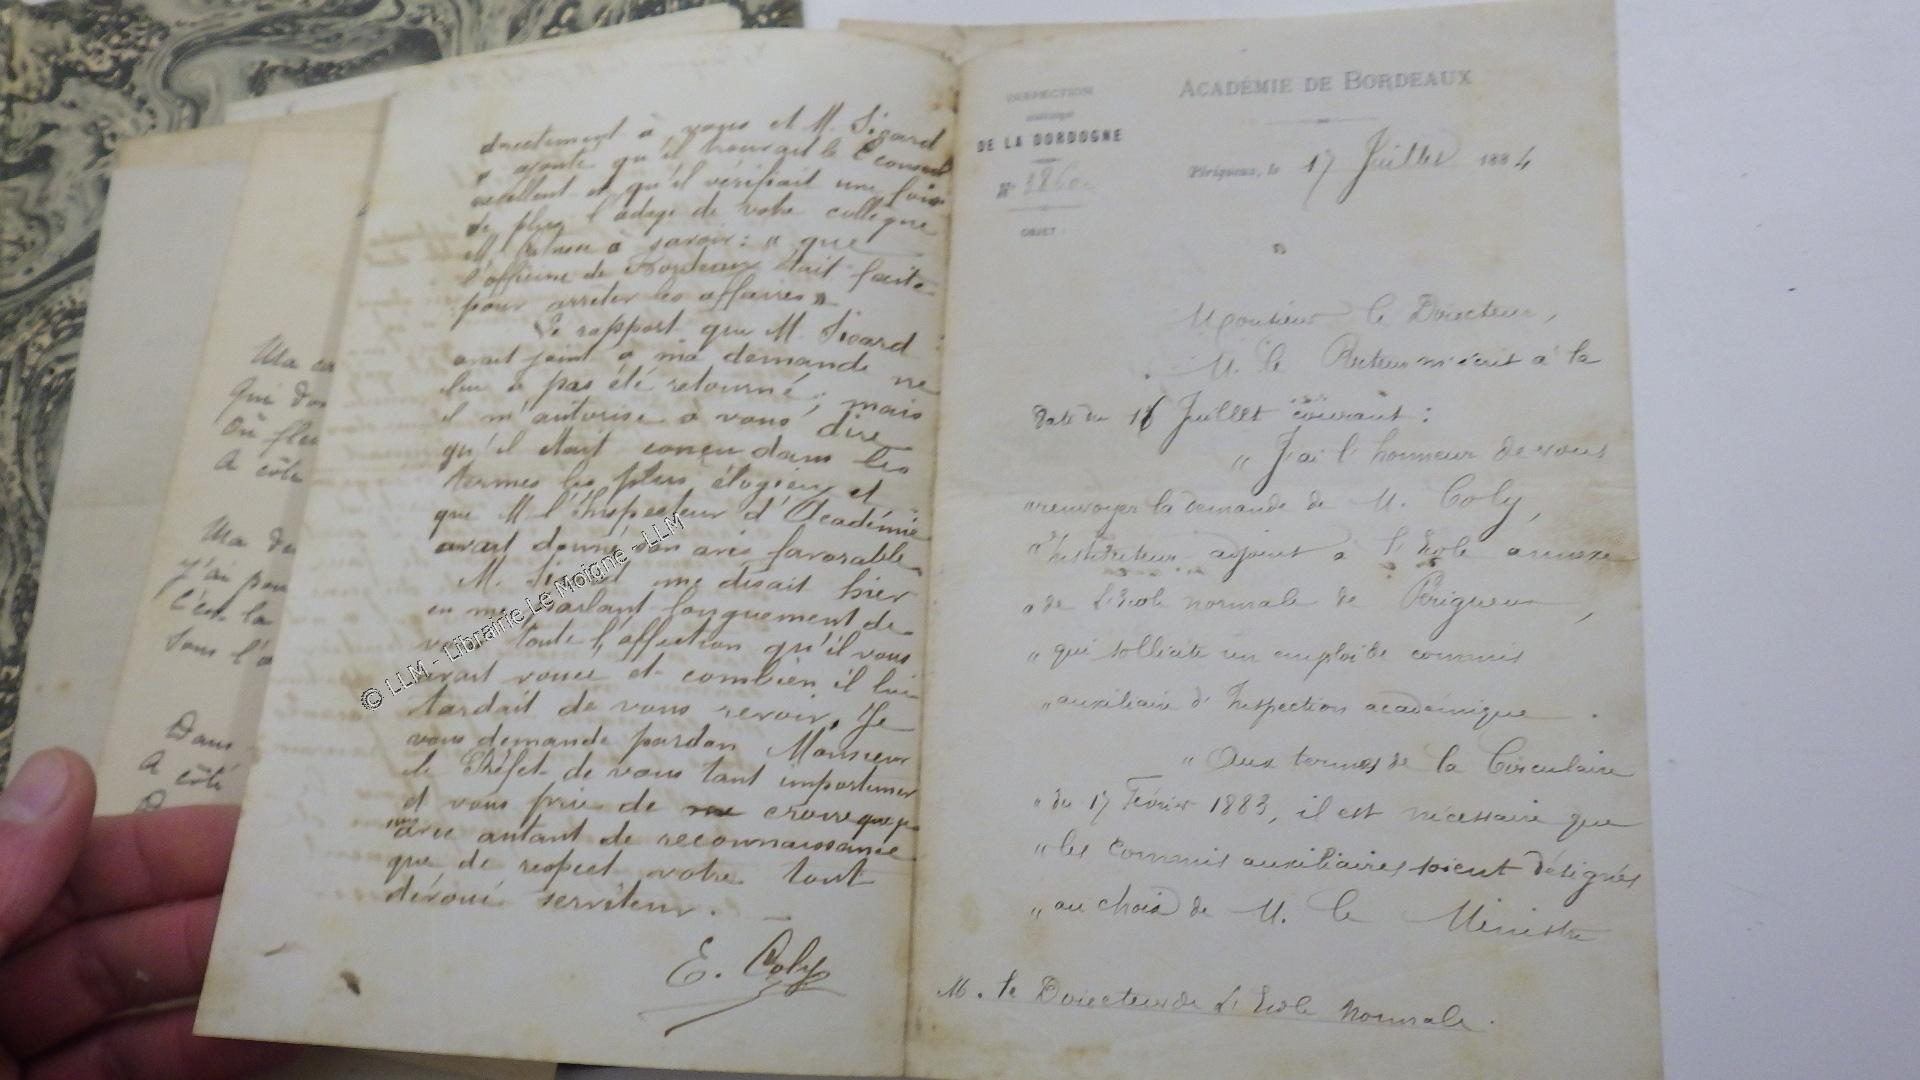 directement à vous et M. Sicard
" ajoute qu'il trouvait le conseil
excellent et qu'il vérifiait une fois
de plus l'adage de votre collègue
M. à savoir : " que
l'officine de Bordeaux était faite
pour arrêter les affaires "
Le rapport que M. Sicard
avait joint à ma demande ne
lui a pas été retourné ; mais
il m'autorise à vous dire
qu'il était conçu dans les
termes les plus élogieux et
que M. l'Inspecteur d'Académie
avait donné son avis favorable
M. Sicard me disait hier
en me parlant longuement de
vous toute l'affection qu'il vous
avait vouée et combien il lui
tardait de vous revoir. Je
vous demande pardon Monsieur
le Préfet de vous tant importuner
et vous prie de me croire
avec autant de reconnaissance
que de respect votre tout
dévoué serviteur.
E. Coly
Qui
Où
A côté
Ma
J'ai
C'est la
Sous l'o
Dans
A côté
© LLM - Librairie Le Moigne - LLM
ACADÉMIE DE BORDEAUX
INSPECTION
DE LA DORDOGNE
N°
OBJET :
Périgueux, le 17 Juillet 1884
Monsieur le Directeur,
M. le Recteur m'écrit à la
date du 16 Juillet courant :
" J'ai l'honneur de vous
" renvoyer la demande de M. Coly,
" Instituteur adjoint à l'Ecole annexe
" de l'Ecole normale de Périgueux,
" qui sollicite un emploi de commis
" auxiliaire d'Inspection académique.
" Aux termes de la Circulaire
" du 17 Février 1883, il est nécessaire que
" les commis auxiliaires soient désignés
" au choix de M. le Ministre
M. le Directeur de l'Ecole Normale.